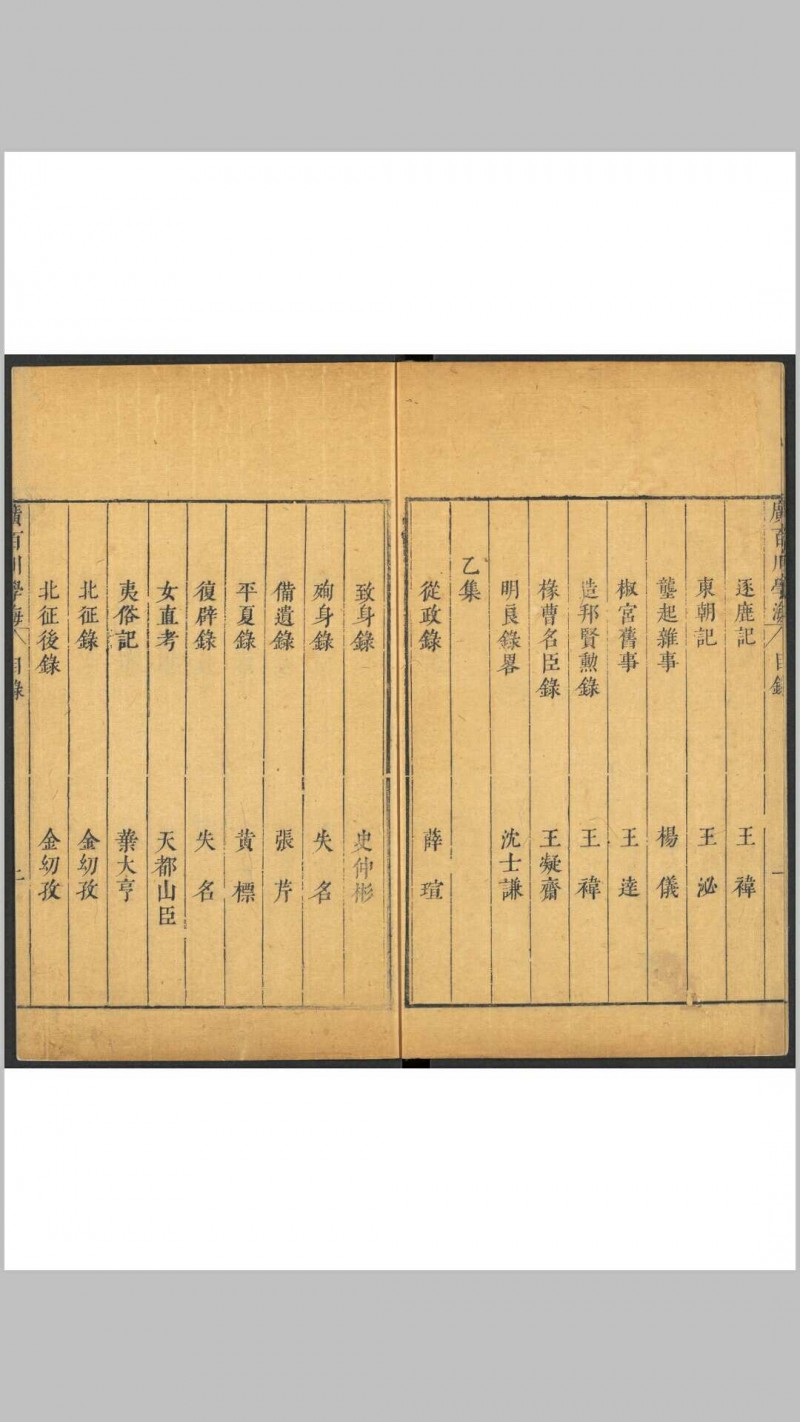 廣百川學海 目錄 一
逐鹿記 王褘
東朝記 王泌
壟起雜事 楊儀
椒宮舊事 王達
造邦賢勲錄 王褘
椽曹名臣錄 王凝齋
明良錄畧 沈士謙
乙集
從政錄 薛瑄
致身錄 史仲彬
殉身錄 失名
備遺錄 張芹
平夏錄 黃標
復辟錄 失名
女直考 天都山臣
夷俗記 蕭大亨
北征錄 金幼孜
北征後錄 金幼孜
廣百川學海 目錄 二